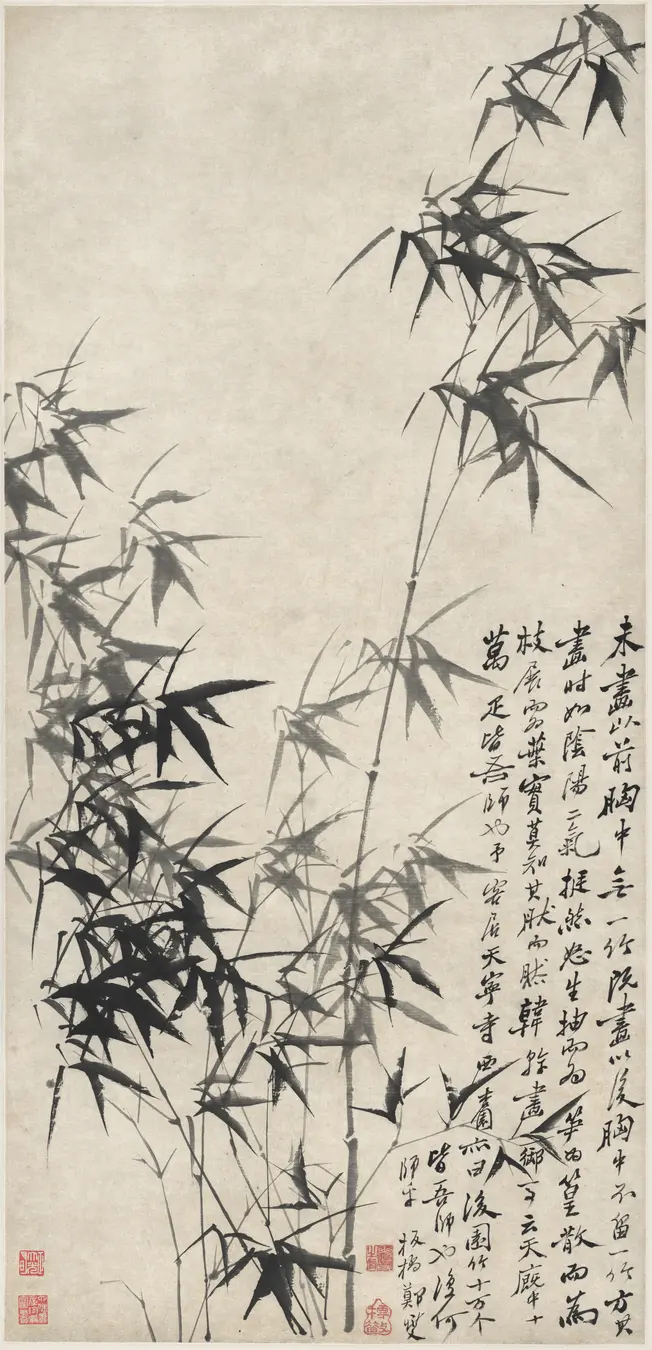 未畫以前胸中無一竹既畫以後胸中不留一竹方其
畫時如陰陽二氣挺然怒生抽而為筍為篁散而為
枝展而為葉實莫知其然而然韓幹畫御馬云天廐中十
萬疋皆吾師也予客居天寧寺西園亦曰後園竹十万个
皆吾師也復何
師乎 板橋鄭燮